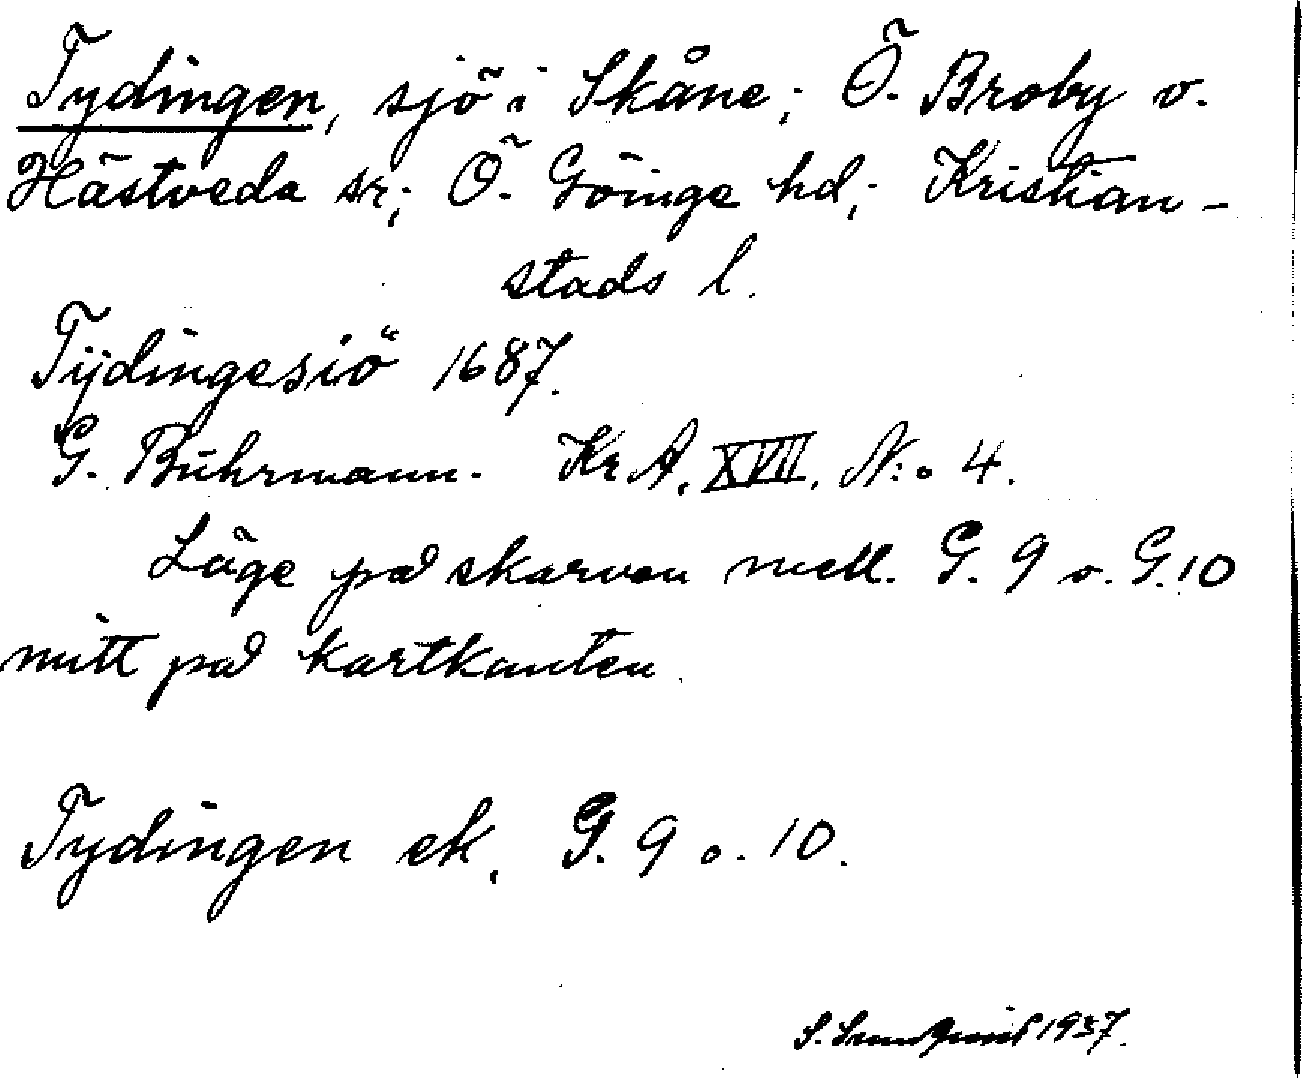 Tydingen, sjö i Skåne; Ö. Broby o.
Hästveda sr; Ö. Göinge hd; Kristian-
stads l.
Tijdingesiö 1687.
G. Buhrmann. Kr A. XVII. N:o 4.
Läge på skarven mell. G. 9 o. G. 10
mitt på kartkanten.
Tydingen ek. G. 9 o. 10.
S. 1937.